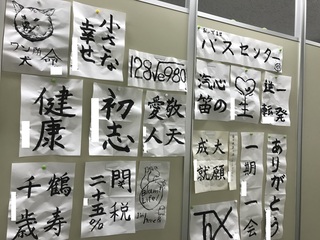 ワン
命
犬
小さな
幸せ
128√e980
健康
初志
敬天
愛人
鶴寿
千歳
関税
二十五%
バスセンター
心の
汽笛
一発
逆転
大願
成就
一期一会
ありがとう
TX